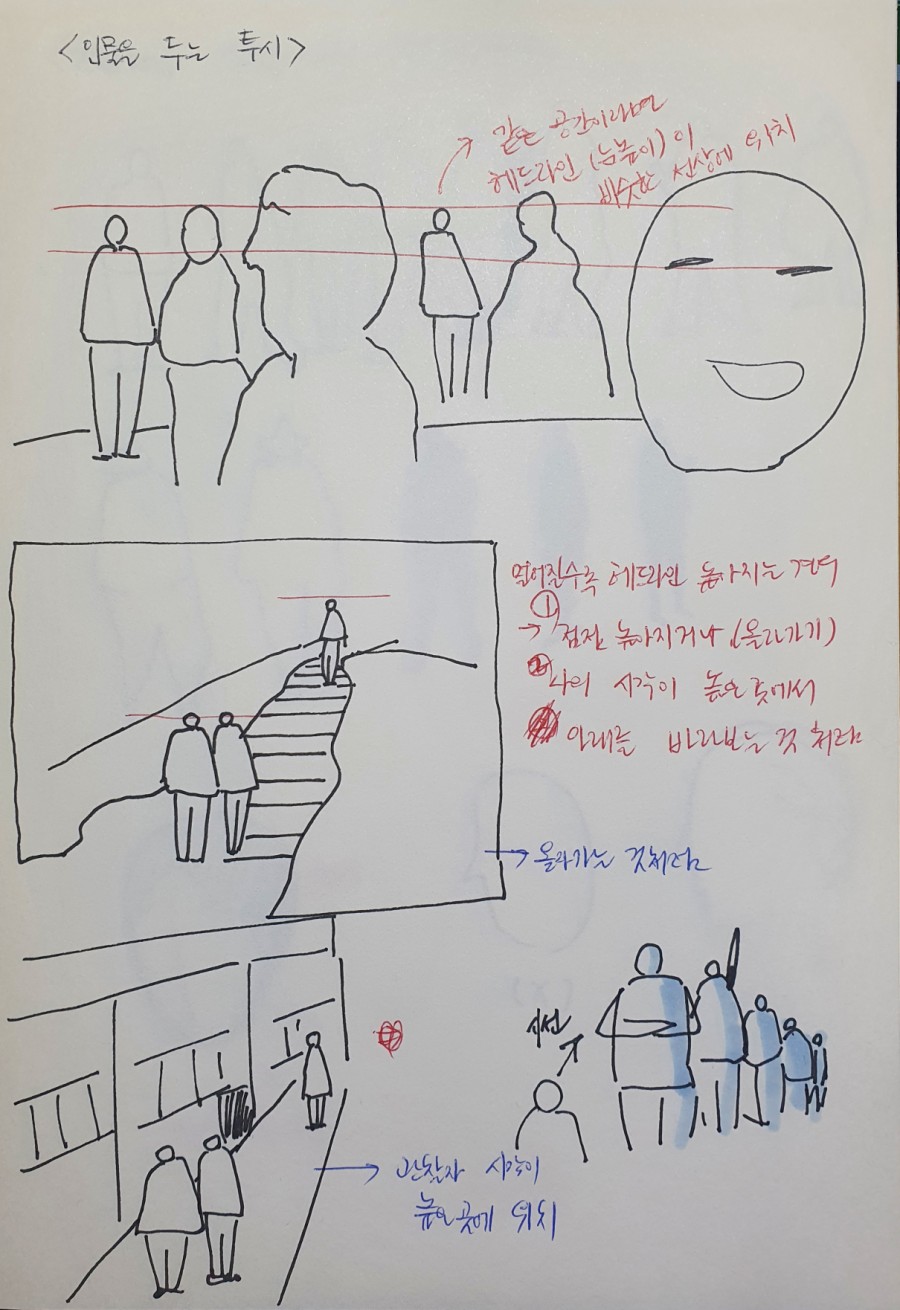 <인물을 두는 투시>
같은 공간이라면
헤드라인 (눈높이)이
비슷한 선상에 위치
멀어질수록 헤드라인 높아지는 경우
①
→ 점점 높아지거나 (올라가기)
② 나의 시각이 높은 곳에서
아래를 바라보는 것 처럼
→ 올라가는 것처럼
시선
→ 관찰자 시각이
높은 곳에 위치